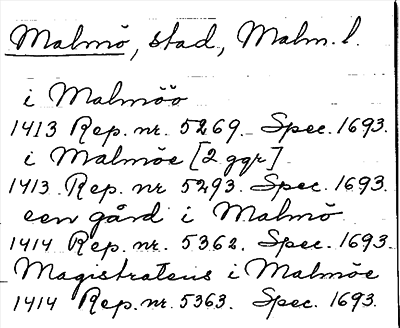 Malmö, stad, Malm. l.
i Malmöö
1413 Rep. nr. 5269. Spec. 1693.
i Malmöe [2 ggr]
1413 Rep. nr 5293. Spec. 1693.
een gård i Malmö
1414 Rep. nr. 5362. Spec. 1693.
Magistratens i Malmöe
1414 Rep. nr. 5363. Spec. 1693.